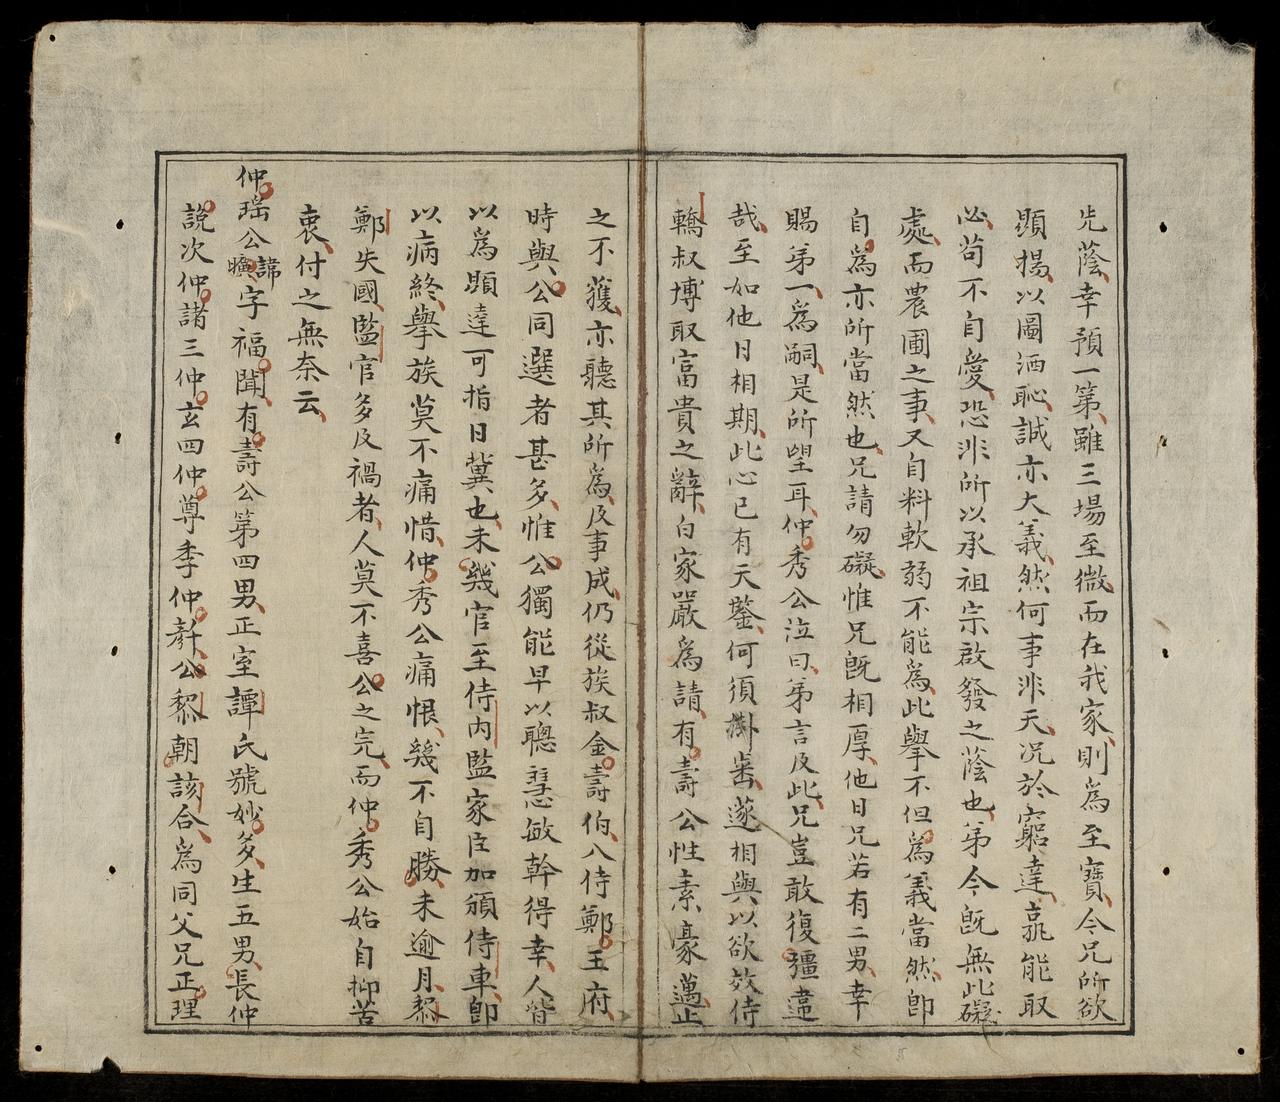 先蔭幸預一第雖三場至微而在我家則為至寶今兄所欲
顯揚以圖洒恥誠亦大義然何事非天况於窮達孰能取
必苟不自愛恐非所以承祖宗啟發之蔭也第今既無此礙
處而農圃之事又自料軟弱不能為此舉不但為義當然卽
自為亦所當然也兄請勿礙惟兄既相厚他日兄若有二男幸
賜第一為嗣是所望耳仲秀公泣曰第言及此兄豈敢復彊違
哉至如他日相期此心已有天鑒何須掛齒遂相與以欲效侍
轎叔博取富貴之辭白家嚴為請有壽公性素豪邁止
之不獲亦聽其所為及事成仍從族叔金壽伯入侍鄭王府
時與公同選者甚多惟公獨能早以聰慧敏幹得幸人皆
以為顯達可指日冀也未幾官至侍內監家臣加頒侍車卽
以病終舉族莫不痛惜仲秀公痛恨幾不自勝未逾月黎
鄭失國監官多及禍者人莫不喜公之完而仲秀公始自抑苦
衷付之無奈云
仲瑤公諱曠字福聞有壽公第四男正室譚氏號妙多生五男長仲
說次仲諸三仲玄四仲尊季仲公黎朝該合為同父兄正理